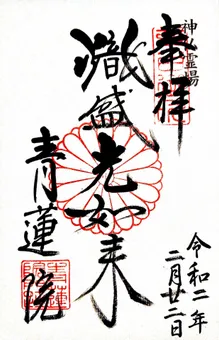 神仏霊場
奉拝
熾盛光如来
青蓮院
令和二年
二月廿二日